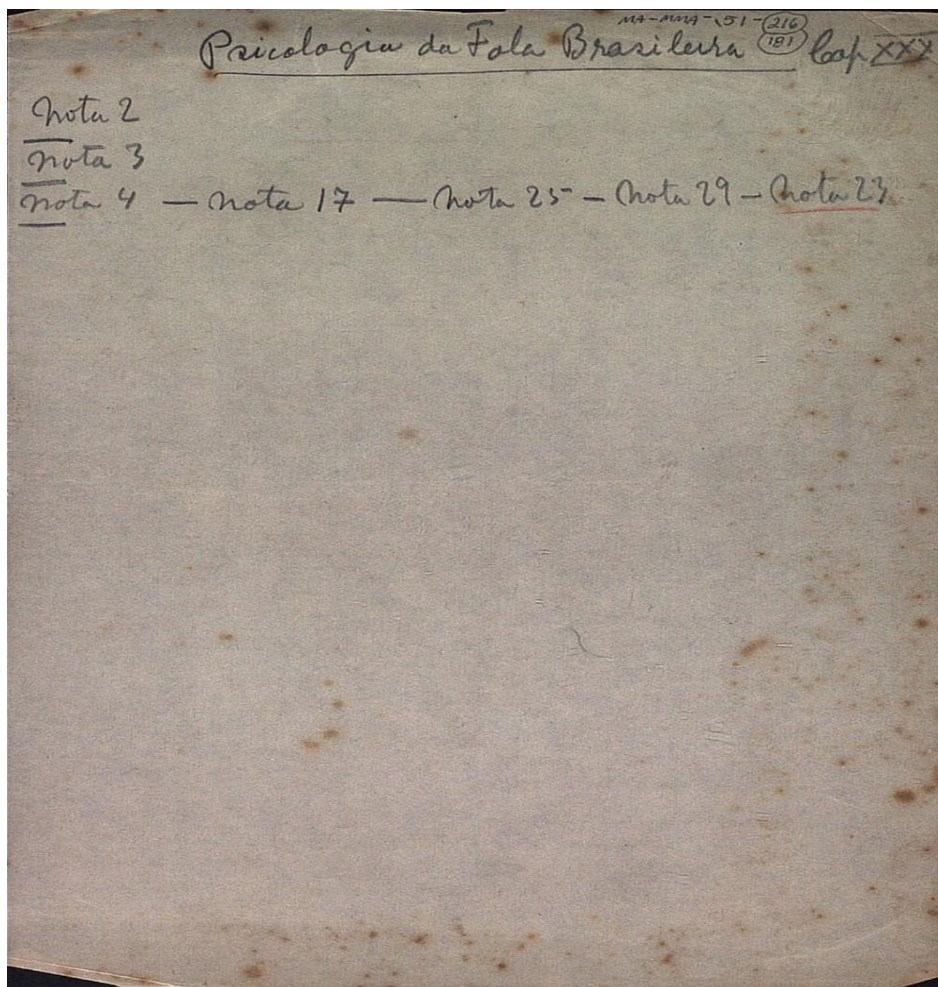 MA-MMA-51-216
181
Psicologia da Fala Brasileira Cap XXX
Nota 2
Nota 3
Nota 4 — Nota 17 — Nota 25 — Nota 29 — Nota 23